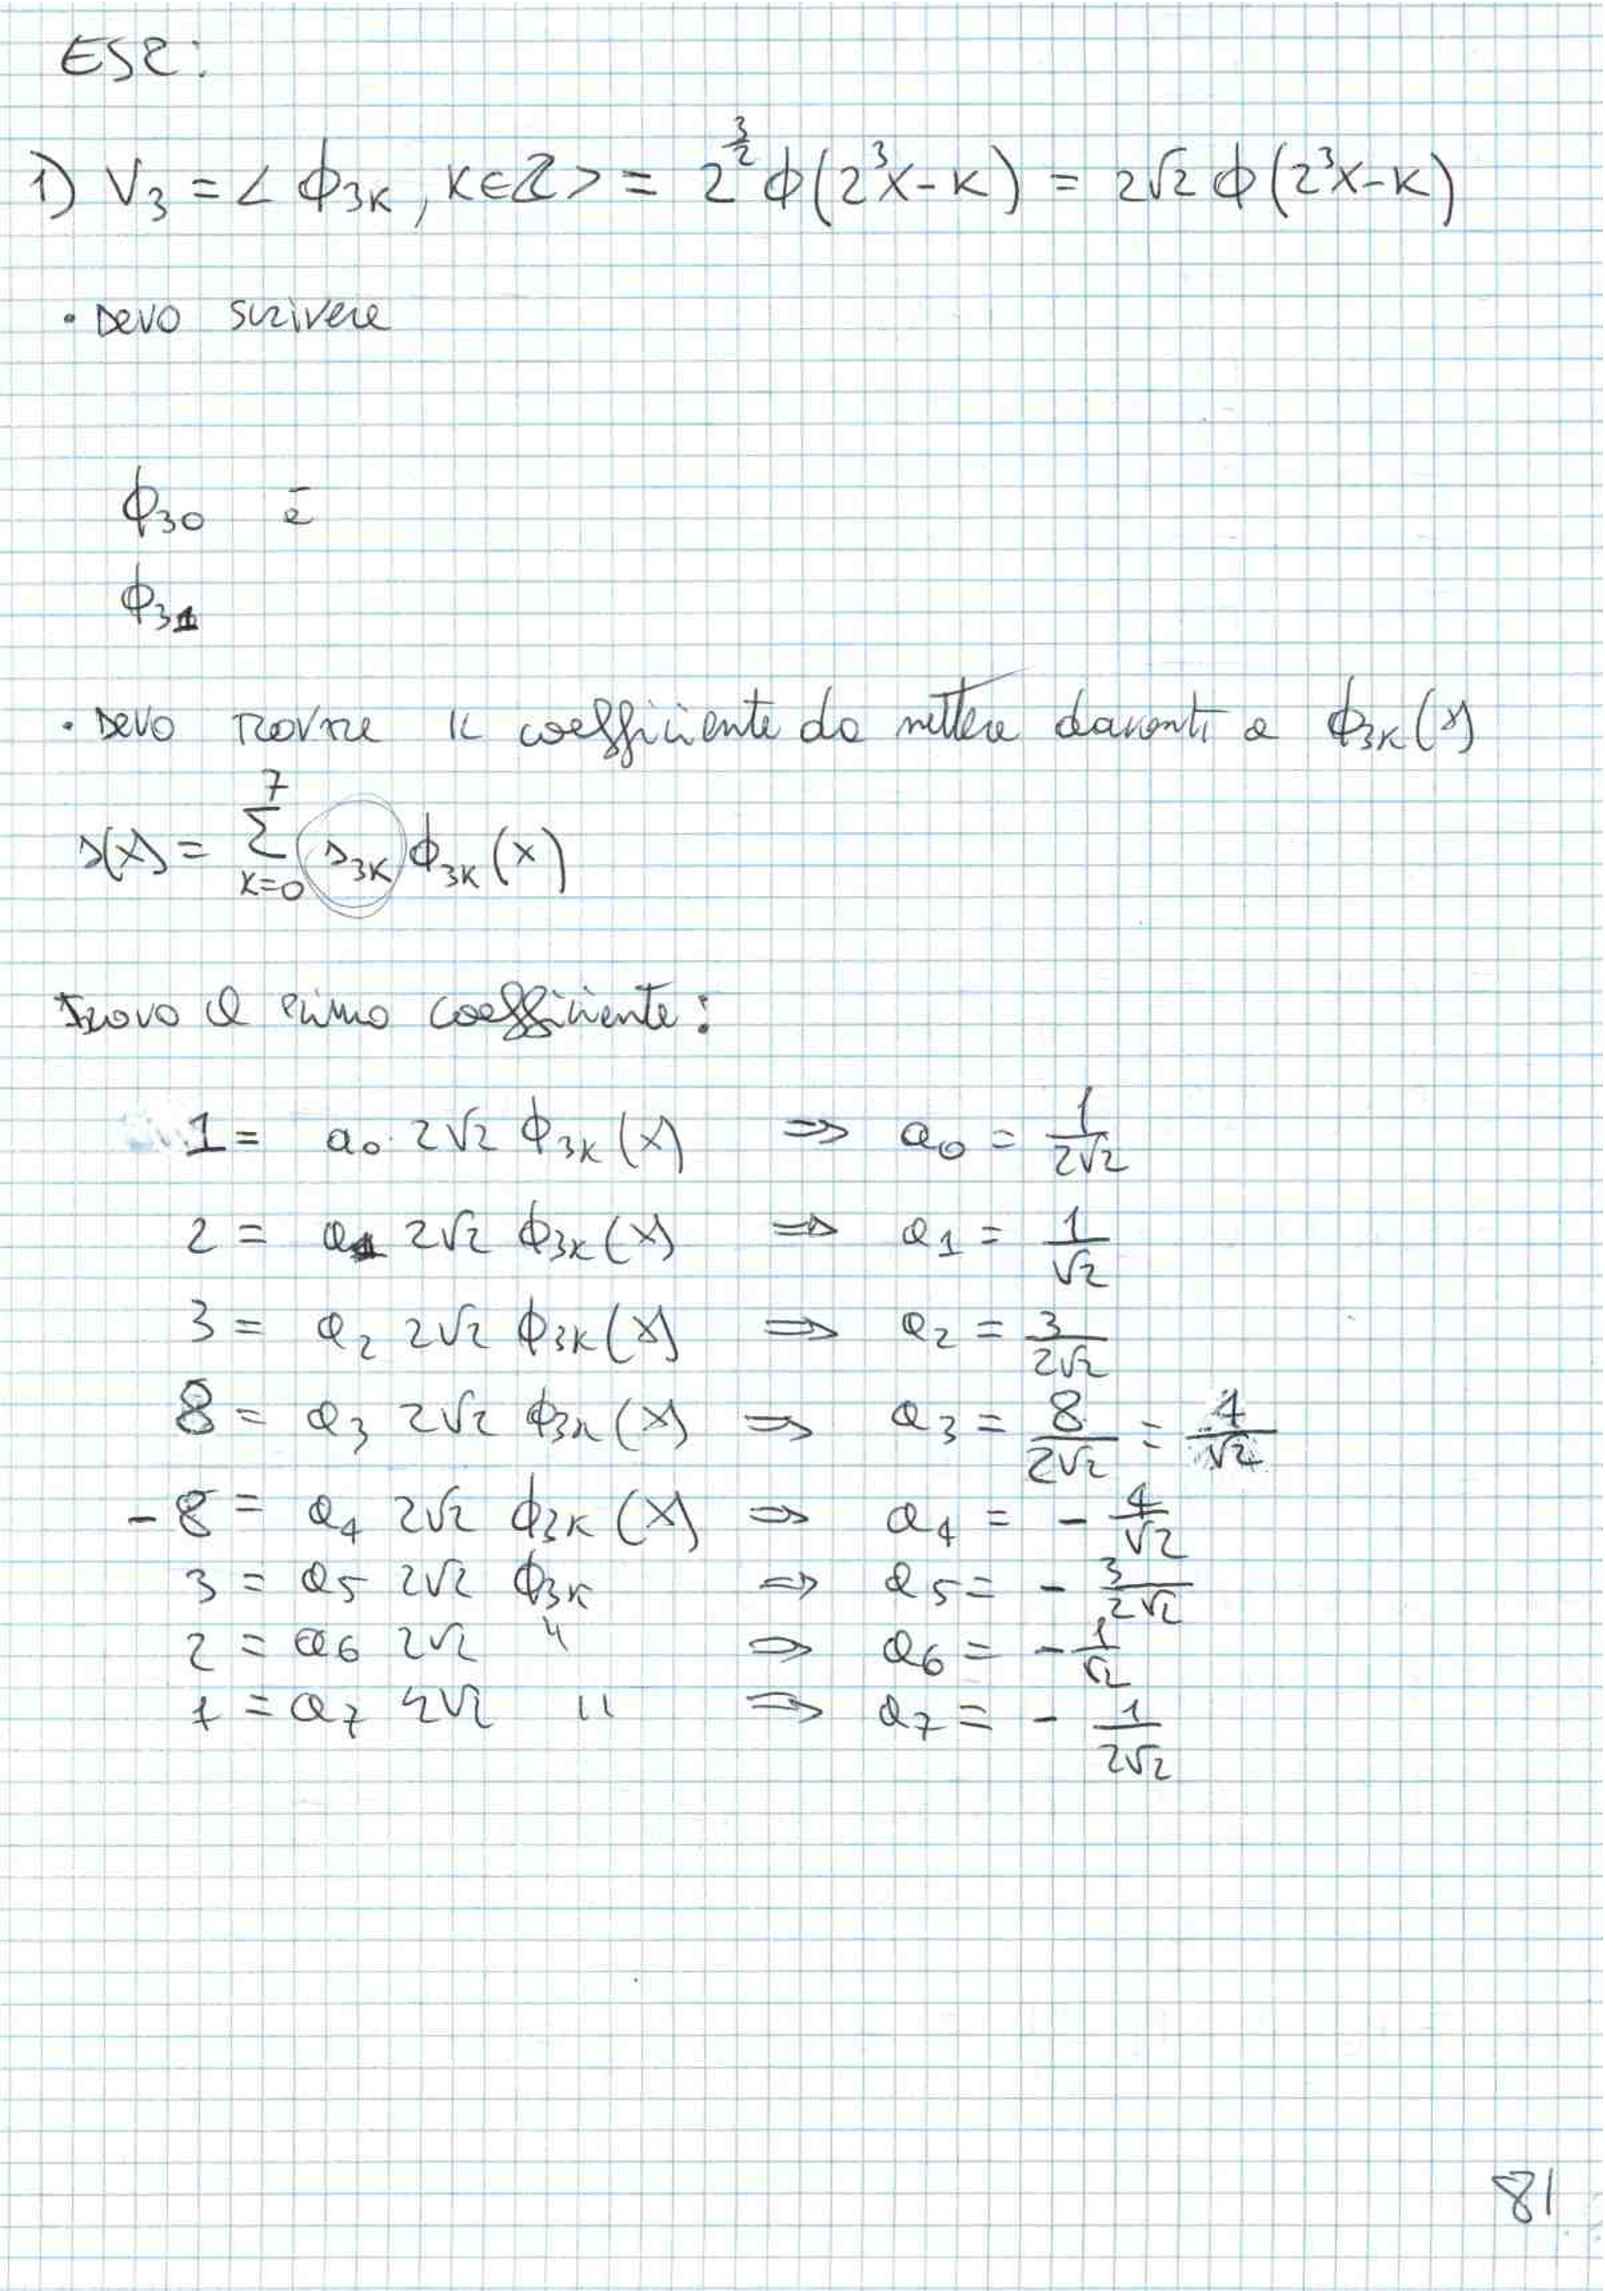 ES2:
1) V₃ = < ϕ₃ₖ, K∈ℤ > = 2^{3/2} ϕ(2³x-K) = 2√2 ϕ(2³x-K)
• Devo scrivere
ϕ₃₀ è
ϕ₃₁
• Devo trovare il coefficiente da mettere davanti a ϕ₃ₖ(x)
s(x) = ∑_{K=0}^{7} s₃ₖ ϕ₃ₖ(x)
Trovo il primo coefficiente:
1 = a₀ · 2√2 ϕ₃ₖ(x) ⇒ a₀ = 1/(2√2)
2 = a₁ 2√2 ϕ₃ₖ(x) ⇒ a₁ = 1/√2
3 = a₂ 2√2 ϕ₃ₖ(x) ⇒ a₂ = 3/(2√2)
8 = a₃ 2√2 ϕ₃ₖ(x) ⇒ a₃ = 8/(2√2) = 4/√2
-8 = a₄ 2√2 ϕ₃ₖ(x) ⇒ a₄ = - 4/√2
3 = a₅ 2√2 ϕ₃ₖ ⇒ a₅ = - 3/(2√2)
2 = a₆ 2√2 " ⇒ a₆ = - 1/√2
1 = a₇ 2√2 " ⇒ a₇ = - 1/(2√2)
81